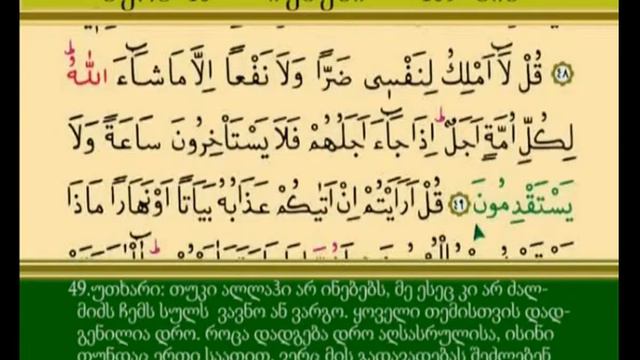 ٤٨ قُلْ لَٓا اَمْلِكُ لِنَفْس۪ي ضَرًّا وَلَا نَفْعًا اِلَّا مَا شَٓاءَ اللّٰهُۜ
لِكُلِّ اُمَّةٍ اَجَلٌۜ اِذَا جَٓاءَ اَجَلُهُمْ فَلَا يَسْتَأْخِرُونَ سَاعَةً وَلَا
يَسْتَقْدِمُونَ ٤٩ قُلْ اَرَاَيْتُمْ اِنْ اَتٰيكُمْ عَذَابُهُ بَيَاتًا اَوْ نَهَارًا مَاذَا
49.უთხარი: თუკი ალლაჰი არ ინებებს, მე ესეც კი არ ძალ-
მიძს ჩემს სულს ვავნო ან ვარგო. ყოველი თემისთვის დად-
გენილია დრო. როცა დადგება დრო აღსასრულისა, ისინი
თუნდაც ერთი საათით, ვერც მის გადავადებას შეძლებენ